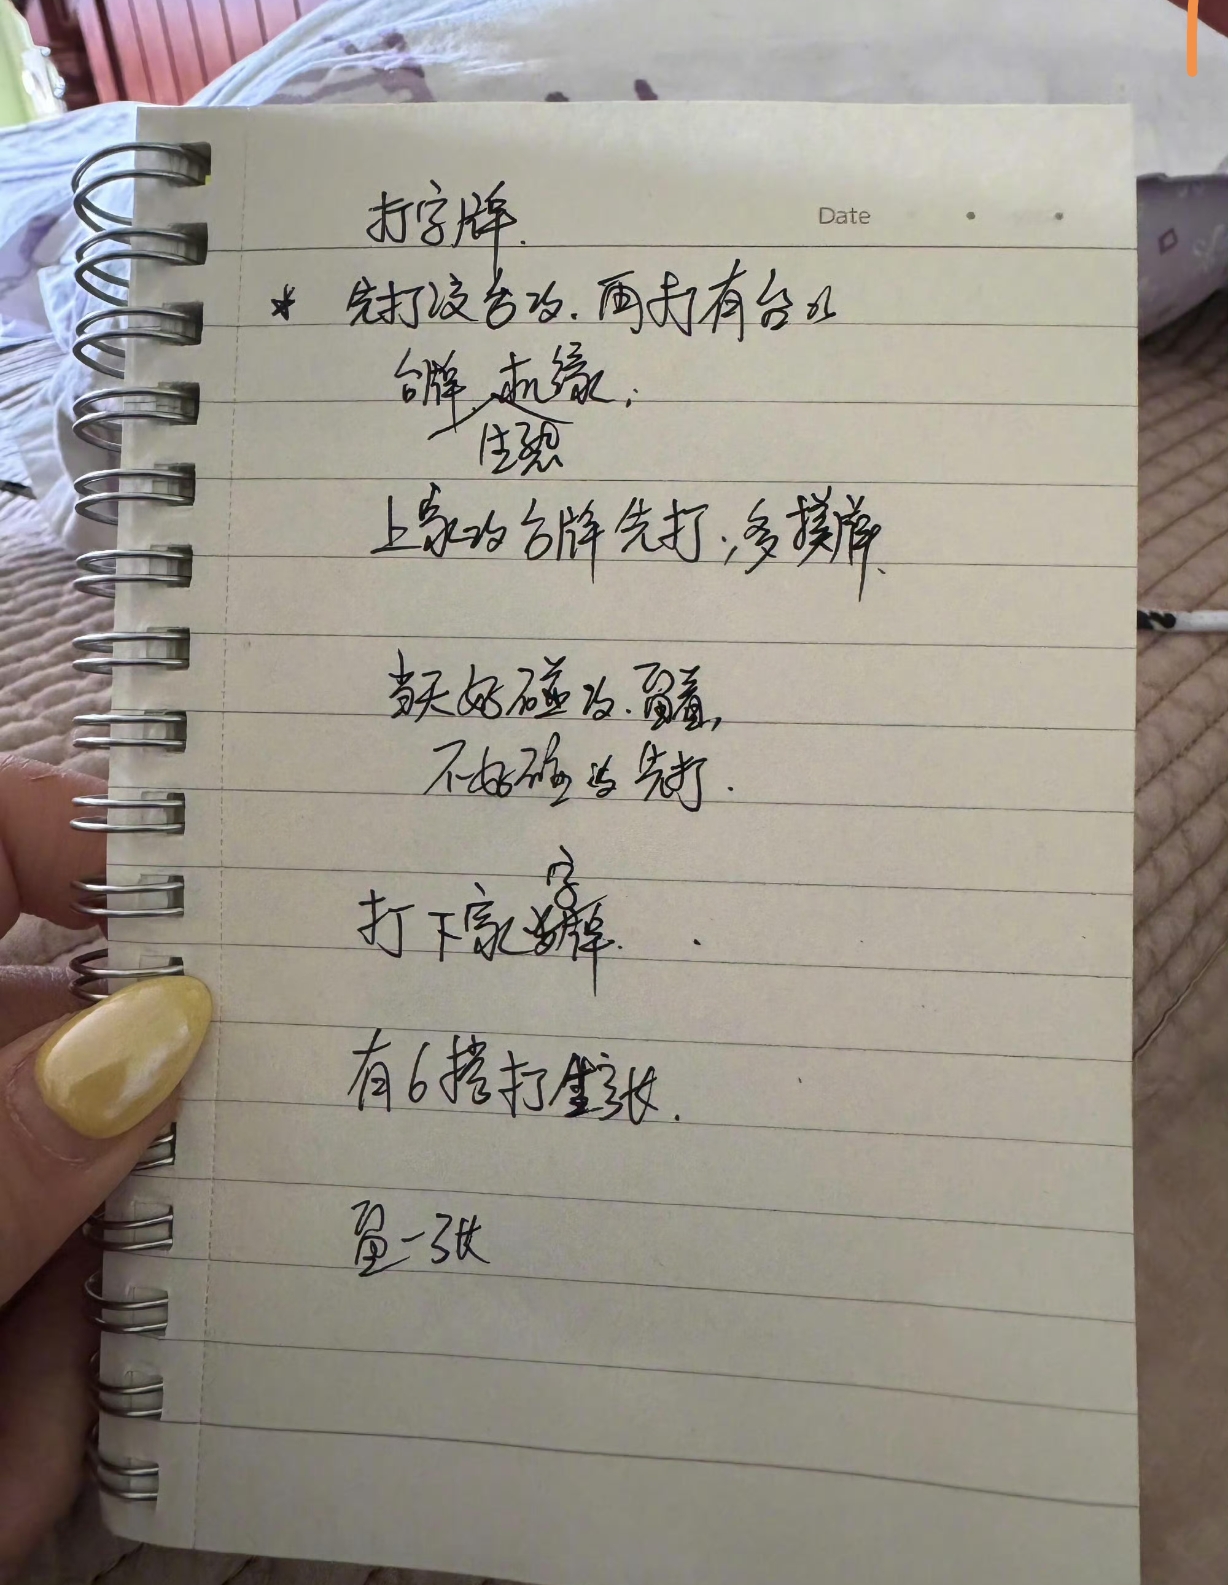 打字牌.
Date
* 先打没台的.再打有台的
台牌.机缘;
生恐
上家的台牌先打.,多摸牌.
当天好碰的.留着,
不好碰的先打.
字
打下家牌.
有6搭打生张.
留一张